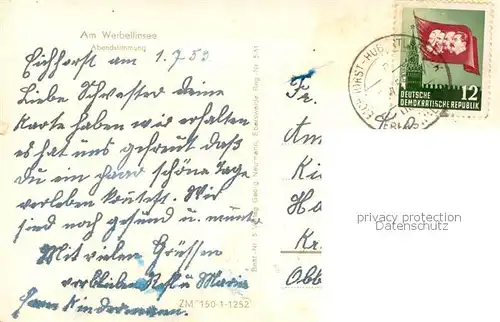 Am Werbellinsee
Abendstimmung
Eichhorst am 1.7.53
Liebe Schwester deine
Karte haben wir erhalten
es hat uns gefreut daß
Du ein paar schöne Tage
verleben konntest. Wir
sind noch gesund u. munter
Mit vielen Grüssen
verbleiben
u Marie
Kindermann.
ZM 150-1-1252
Best.-Nr. 5 Verlag Georg Neumann, Eberswalde Reg.-Nr.
Fr.
DEUTSCHE
DEMOKRATISCHE REPUBLIK
12
privacy protection
Datenschutz